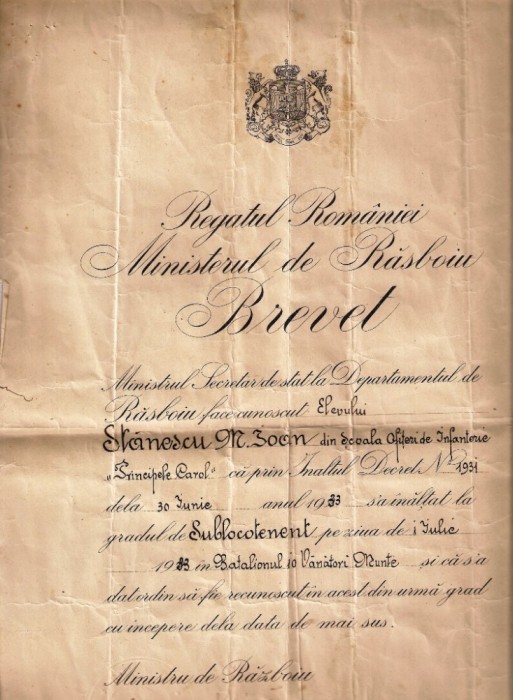 Regatul României
Ministerul de Răsboiu
Brevet
Ministrul Secretar de stat la Departamentul de
Răsboiu face cunoscut Elevului
Stănescu M. Ioan din Școala Ofițeri de Infanterie
„Principele Carol" că prin Inaltul Decret No 1931
dela 30 Iunie anul 1933 s'a înălțat la
gradul de Sublocotenent pe ziua de 1 Iulie
1933 în Batalionul 10 Vânători Munte și că s'a
dat ordin să fie recunoscut in acest din urmă grad
cu incepere dela data de mai sus.
Ministru de Război